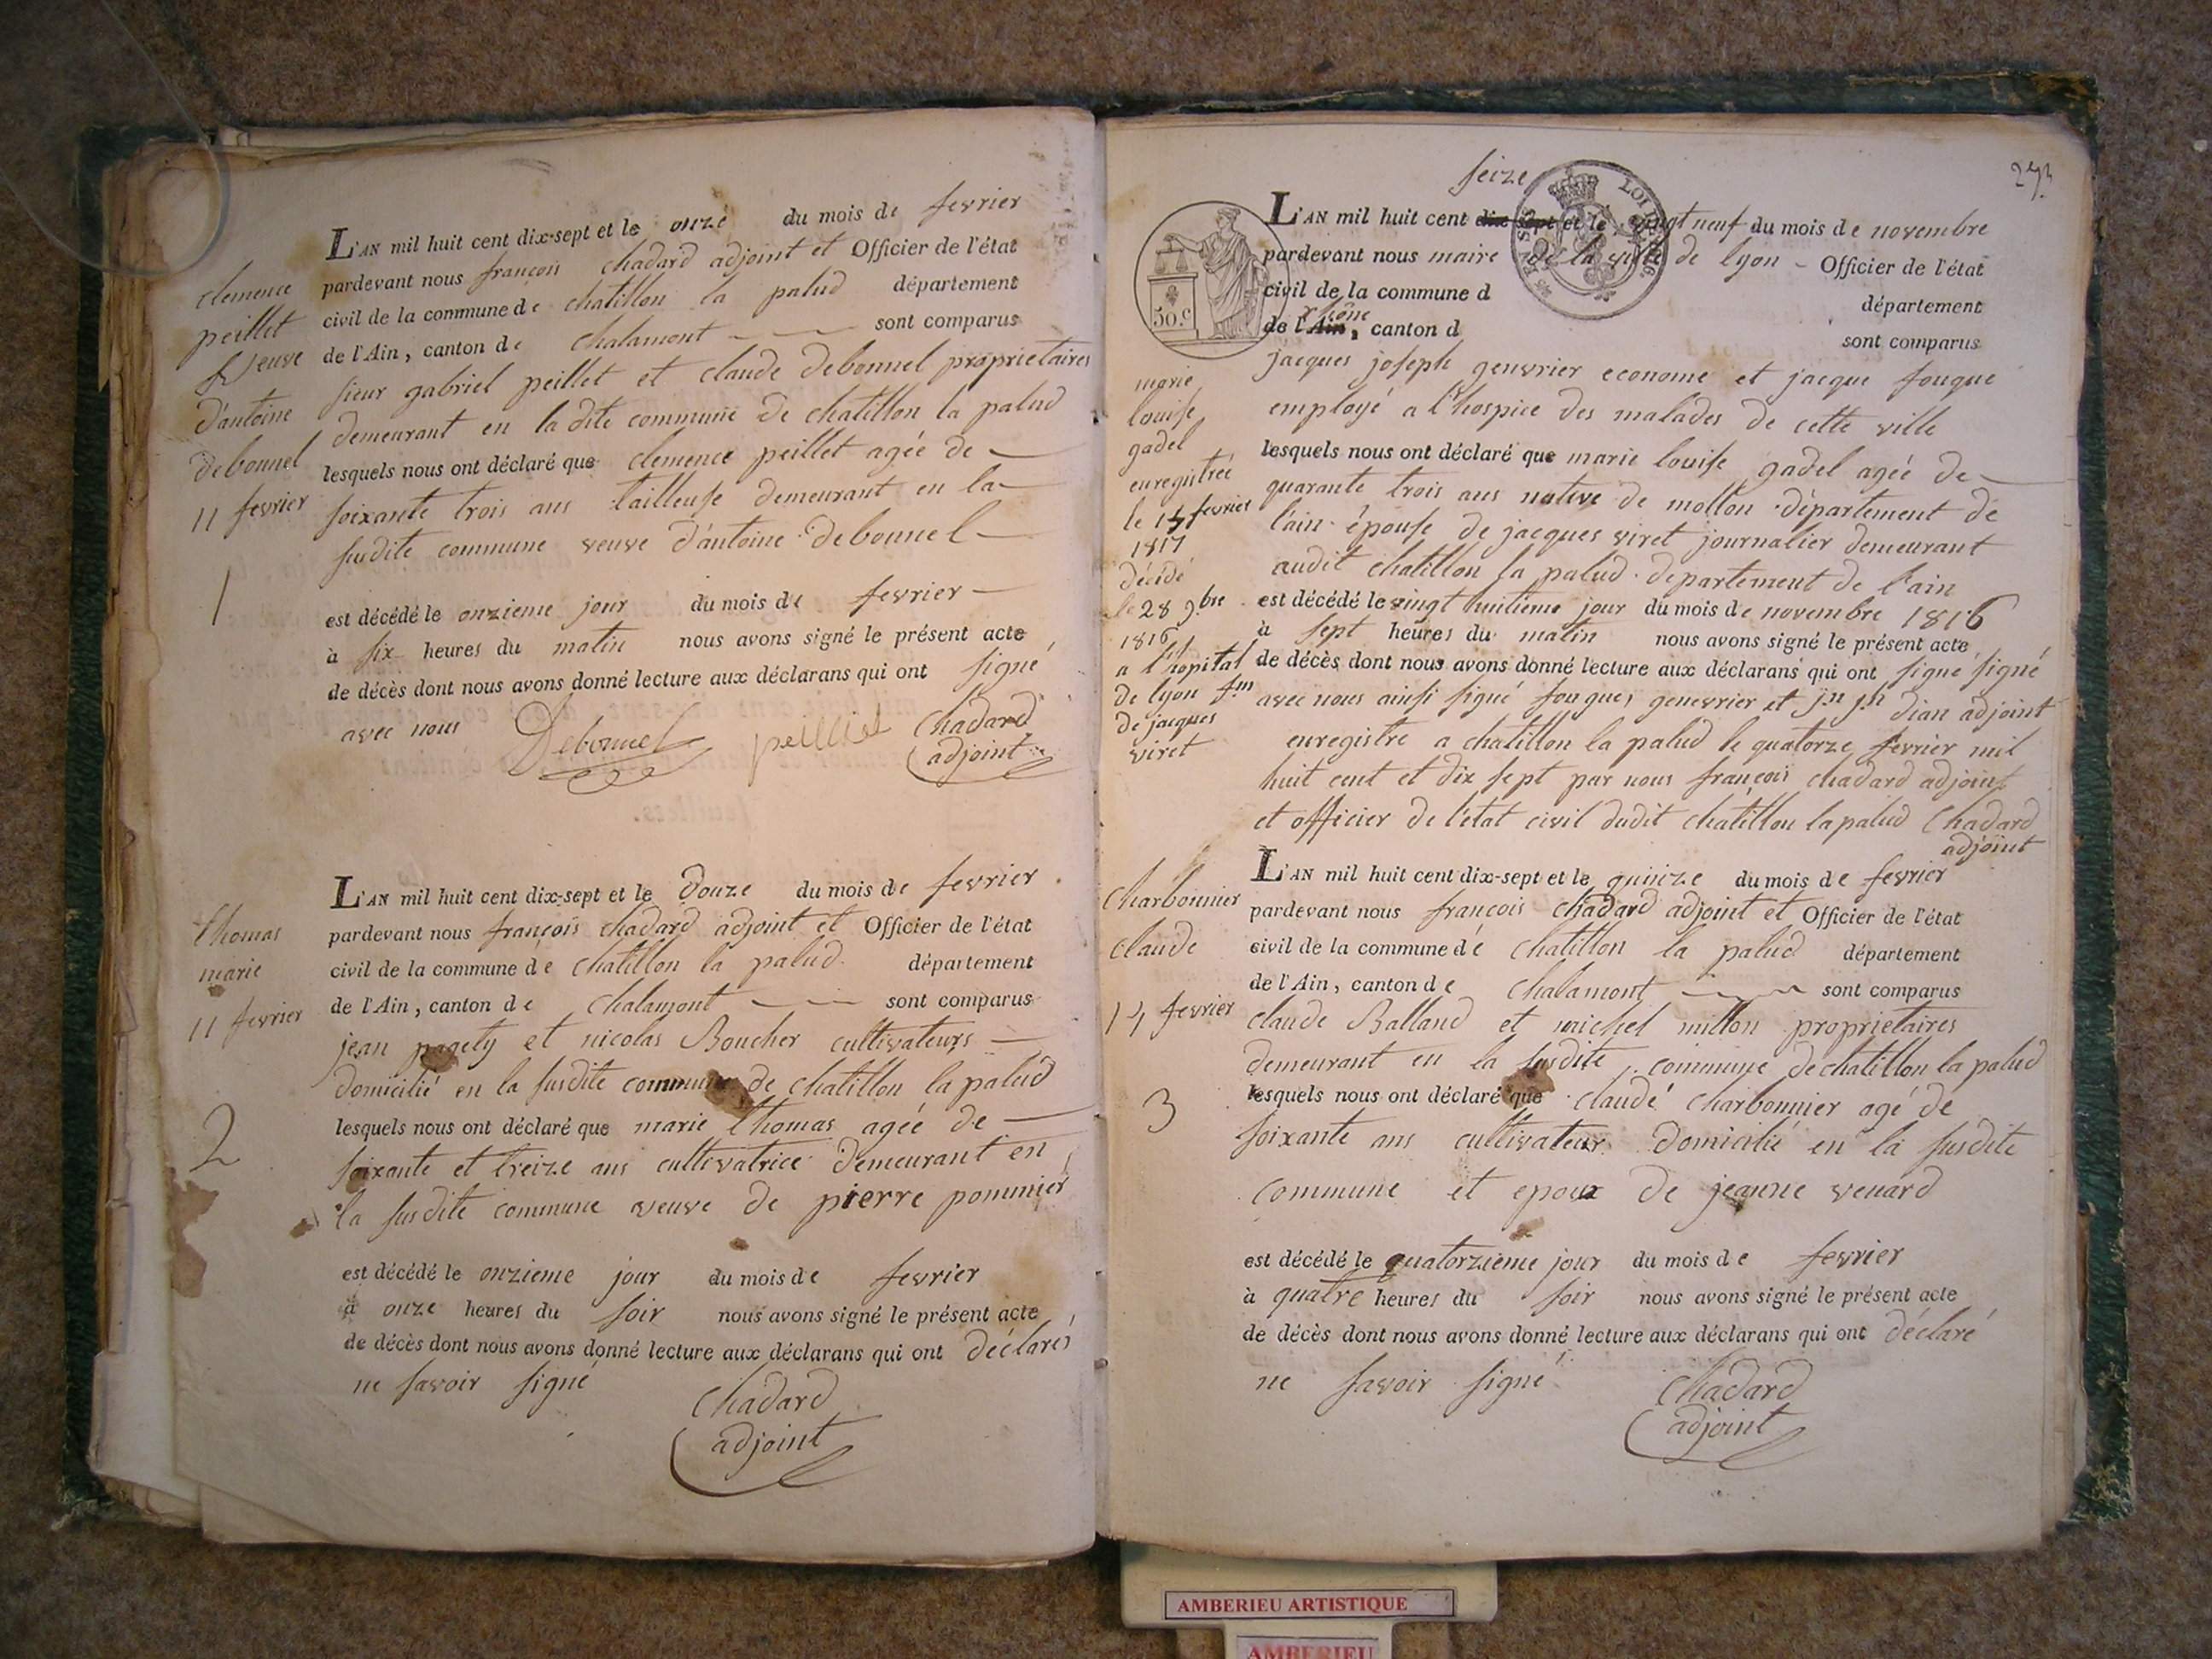 L'AN mil huit cent dix-sept et le onze du mois de fevrier
pardevant nous françois chadard adjoint et Officier de l'état
civil de la commune de chatillon la palud département
de l'Ain, canton de chalamont sont comparus
sieur gabriel peillet et claude debonnel proprietaires
demeurant en la dite commune de chatillon la palud
lesquels nous ont déclaré que clemence peillet agée de
soixante trois ans tailleuse demeurant en la
susdite commune veuve d'antoine debonnel
est décédé le onzieme jour du mois de fevrier
à six heures du matin nous avons signé le présent acte
de décès dont nous avons donné lecture aux déclarans qui ont signé
avec nous Debonnel peilliet Chadard
adjoint
clemence
peillet
veuve
d'antoine
debonnel
11 fevrier
1
L'AN mil huit cent dix-sept et le douze du mois de fevrier
pardevant nous françois chadard adjoint et Officier de l'état
civil de la commune de chatillon la palud département
de l'Ain, canton de chalamont sont comparus
jean et nicolas Boucher cultivateurs
domicilié en la susdite commune de chatillon la palud
lesquels nous ont déclaré que marie thomas agée de
soixante et treize ans cultivatrice demeurant en
la susdite commune veuve de pierre pommier
est décédé le onzieme jour du mois de fevrier
à onze heures du soir nous avons signé le présent acte
de décès dont nous avons donné lecture aux déclarans qui ont déclarés
ne savoir signé
Chadard
adjoint
thomas
marie
11 fevrier
2
273
seize
L'AN mil huit cent dix-sept et le vingt neuf du mois de novembre
pardevant nous maire de la ville de lyon Officier de l'état
civil de la commune d département
rhône
de l'Ain, canton d sont comparus
jacques joseph genevrier econome et jacque fouque
employé a l'hospice des malades de cette ville
lesquels nous ont déclaré que marie louise gadel agée de
quarante trois ans native de mollon département de
l'ain épouse de jacques viret journalier demeurant
audit chatillon la palud departement de l'ain
est décédé le vingt huitieme jour du mois de novembre 1816
à sept heures du matin nous avons signé le présent acte
de décès dont nous avons donné lecture aux déclarans qui ont signe signé
avec nous ainsi signé fouque, genevrier et jn jh dian adjoint
enregistre a chatillon la palud le quatorze fevrier mil
huit cent et dix sept par nous françois chadard adjoint
et officier de l'etat civil dudit chatillon la palud Chadard
adjoint
50.c
marie
louise
gadel
enregistrée
le 14 fevrier
1817
décédé
le 28 9.bre
1816
a l'hopital
de lyon fm
de jacques
viret
L'AN mil huit cent dix-sept et le quinze du mois de fevrier
pardevant nous françois chadard adjoint et Officier de l'état
civil de la commune dé chatillon la palud département
de l'Ain, canton de chalamont sont comparus
claude Balland et michel millon proprietaires
demeurant en la susdite commune de chatillon la palud
lesquels nous ont déclaré que claude charbonnier agé de
soixante ans cultivateur domicilié en la susdite
commune et epoux de jeanne venard
est décédé le quatorzieme jour du mois de fevrier
à quatre heures du soir nous avons signé le présent acte
de décès dont nous avons donné lecture aux déclarans qui ont déclaré
ne savoir signé
Chadard
adjoint
Charbonnier
claude
14 fevrier
3
AMBERIEU ARTISTIQUE
AMBERIEU